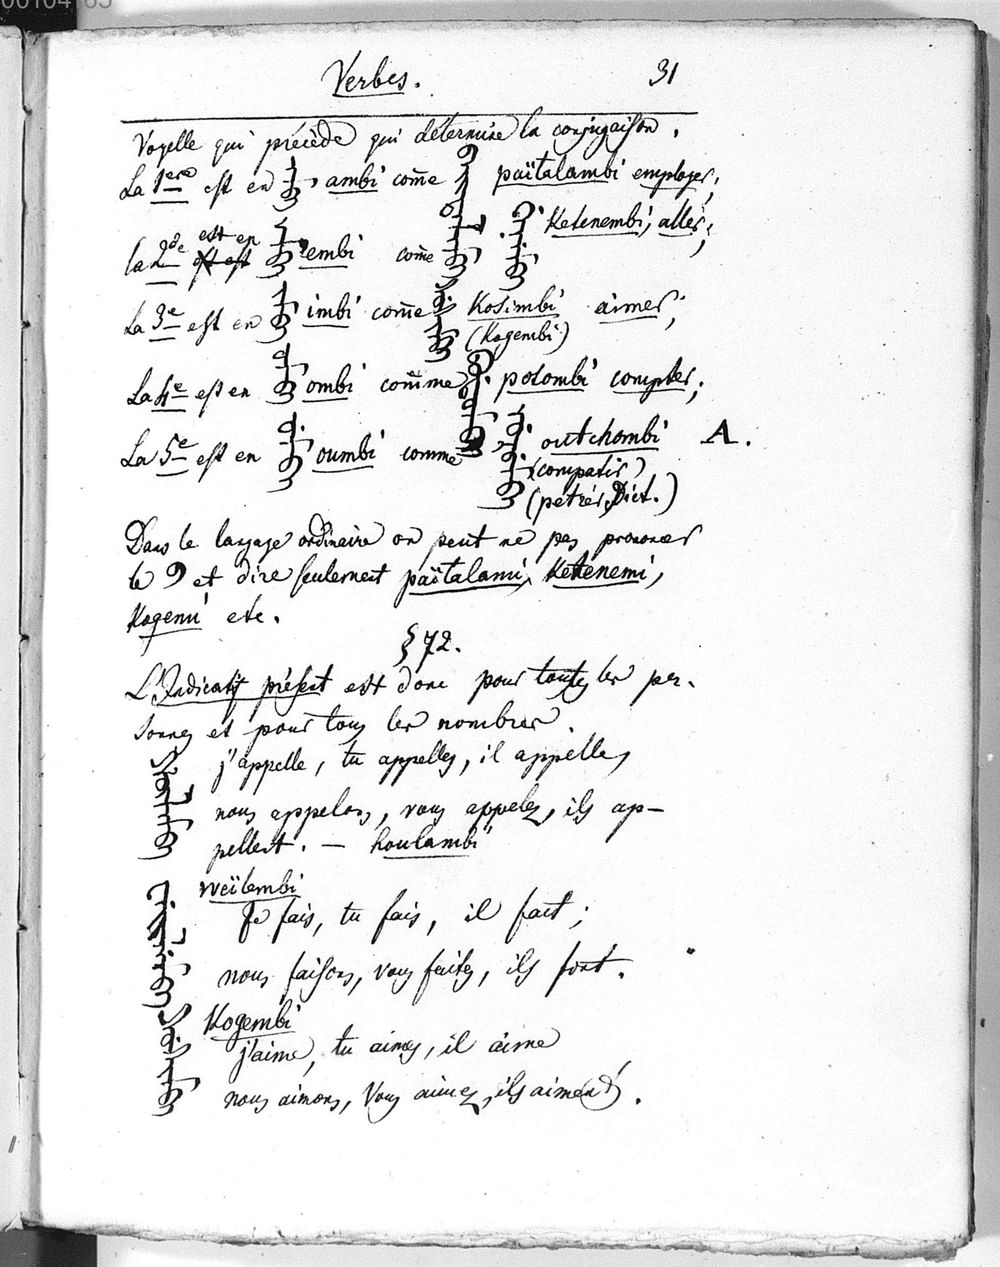 Verbes. 31
Voyelle qui précède qui détermine la conjugaison.
La 1ere est en ambi come païtalambi employer;
Ketenembi, aller;
est en
la 2de embi come
La 3e est en imbi come Kosimbi aimer;
(Kogembi)
La 4e est en ombi comme polombi compter;
La 5e est en oumbi comme outchombi A.
(compatir)
(pétrir, Dict.)
Dans le langage ordinaire on peut ne pas prononcer
le et dire seulement païtalami, Ketenemi,
Kogemi etc.
§ 72.
L'Indicatif présent est donc pour toutes les per-
sonnes et pour tous les nombres.
j'appelle, tu appelles, il appelle,
nous appelons, vous appelez, ils ap-
pellent. — houlambi
weïlembi
Je fais, tu fais, il fait;
nous faisons, vous faites, ils font.
Kogembi
j'aime, tu aimes, il aime
nous aimons, Vous aimez, ils aiment.